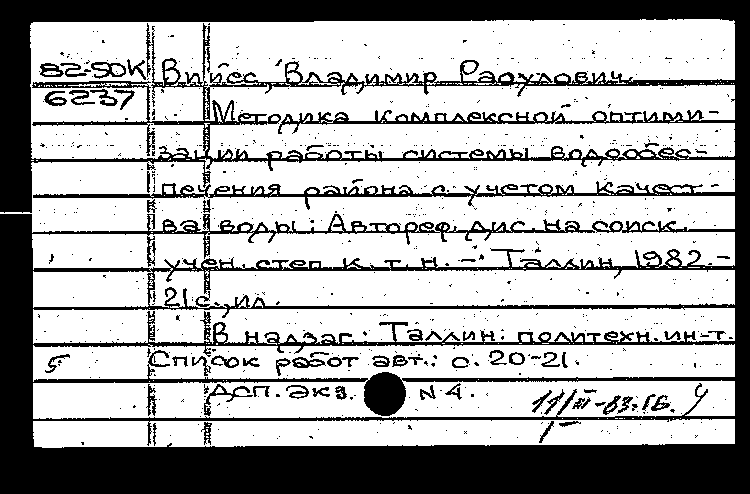 82-50К Вийес, Владимир Раоулович.
6237
Методика комплексной оптими-
зации работы системы водообес-
печения района с учетом качест-
ва воды: Автореф. дис. на соиск.
учен. степ. к. т. н. - Таллин, 1982. -
21 с., ил.
В надзаг.: Таллин. политехн. ин-т.
5 Список работ авт.: с. 20-21.
ДСП. Экз. N 4.
11/III-83.